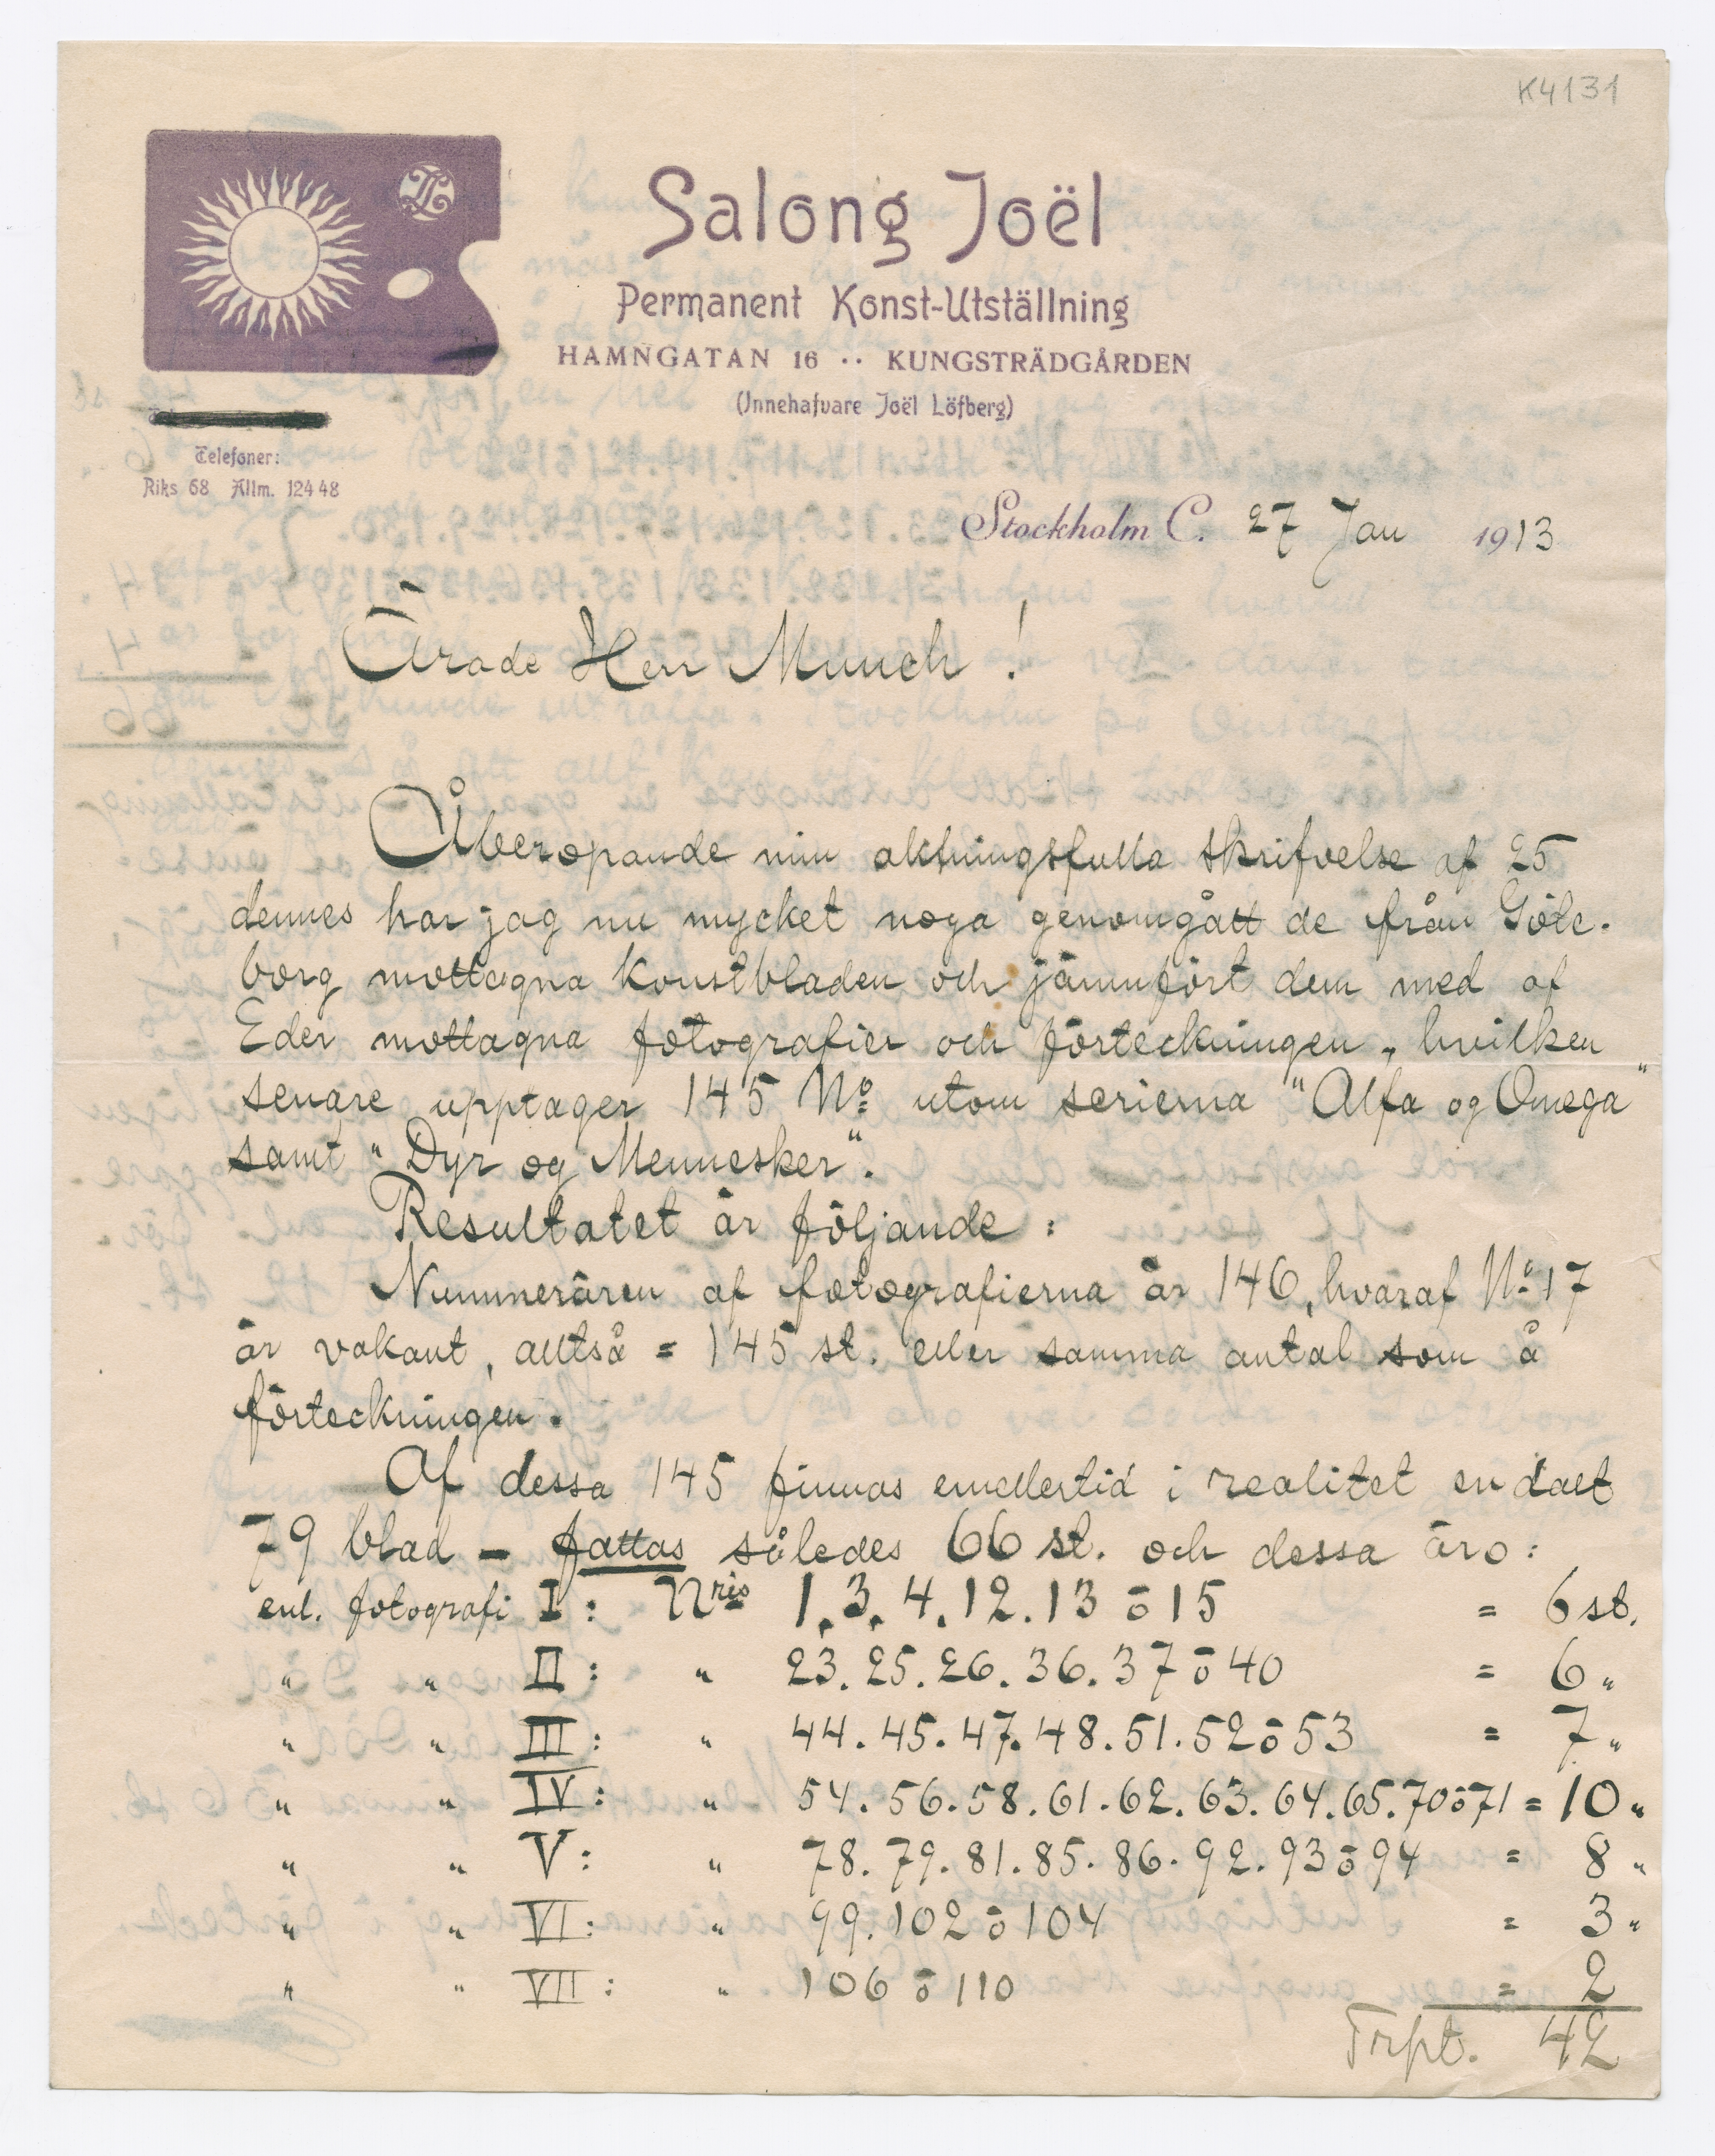 K4131
Salong Joël
Permanent Konst-Utställning
HAMNGATAN 16 ·· KUNGSTRÄDGÅRDEN
(Innehafvare Joël Löfberg)
Telefoner:
Riks 68 Allm. 124 48
Stockholm C. 27 Jan 1913
Ärade Herr Munch!
Åberopande min aktningsfulla skrifvelse af 25
dennes har jag nu mycket noga genomgått de från Göte-
borg mottagna konstbladen och jämnfört dem med af
Eder mottagna fotografier och förteckningen, hvilken
senare upptager 145 No utom serierna "Alfa og Omega"
samt "Dyr og Mennesker".
Resultatet är följande:
Nummerären af fotografierna är 146, hvaraf No 17
är vakant, alltså = 145 st. eller samma antal som å
förteckningen.
Af dessa 145 finnas emellertid i realitet endast
79 blad – fattas således 66 st. och dessa äro:
enl. fotografi I: Nris 1. 3. 4. 12. 13 o 15 = 6 st.
" " II: " 23. 25. 26. 36. 37 o 40 = 6 "
" " III: " 44. 45. 47. 48. 51. 52 o 53 = 7 "
" " IV: " 54. 56. 58. 61. 62. 63. 64. 65. 70 o 71 = 10 "
" " V: " 78. 79. 81. 85. 86. 92. 93 o 94 = 8 "
" " VI: " 99. 102 o 104 = 3 "
" " VII: " 106 o 110 = 2
Trpt. 42